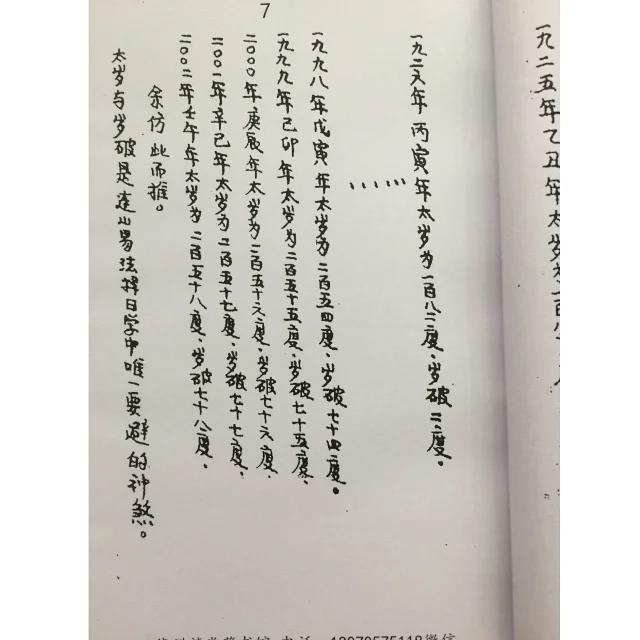 7
一九二五年乙丑年太岁为一百八
一九二六年丙寅年太岁为一百八二度.岁破二度.
......
一九九八年戊寅年太岁为二百五四度.岁破七十四度。
一九九九年己卯年太岁为二百五十五度.岁破七十五度.
二000年庚辰年太岁为二百五十六度.岁破七十六度.
二00一年辛巳年太岁为二百五十七度.岁破七十七度.
二00二年壬午年太岁为二百五十八度.岁破七十八度.
余仿此而推。
太岁与岁破是连山易法择日学中唯一要避的神煞。